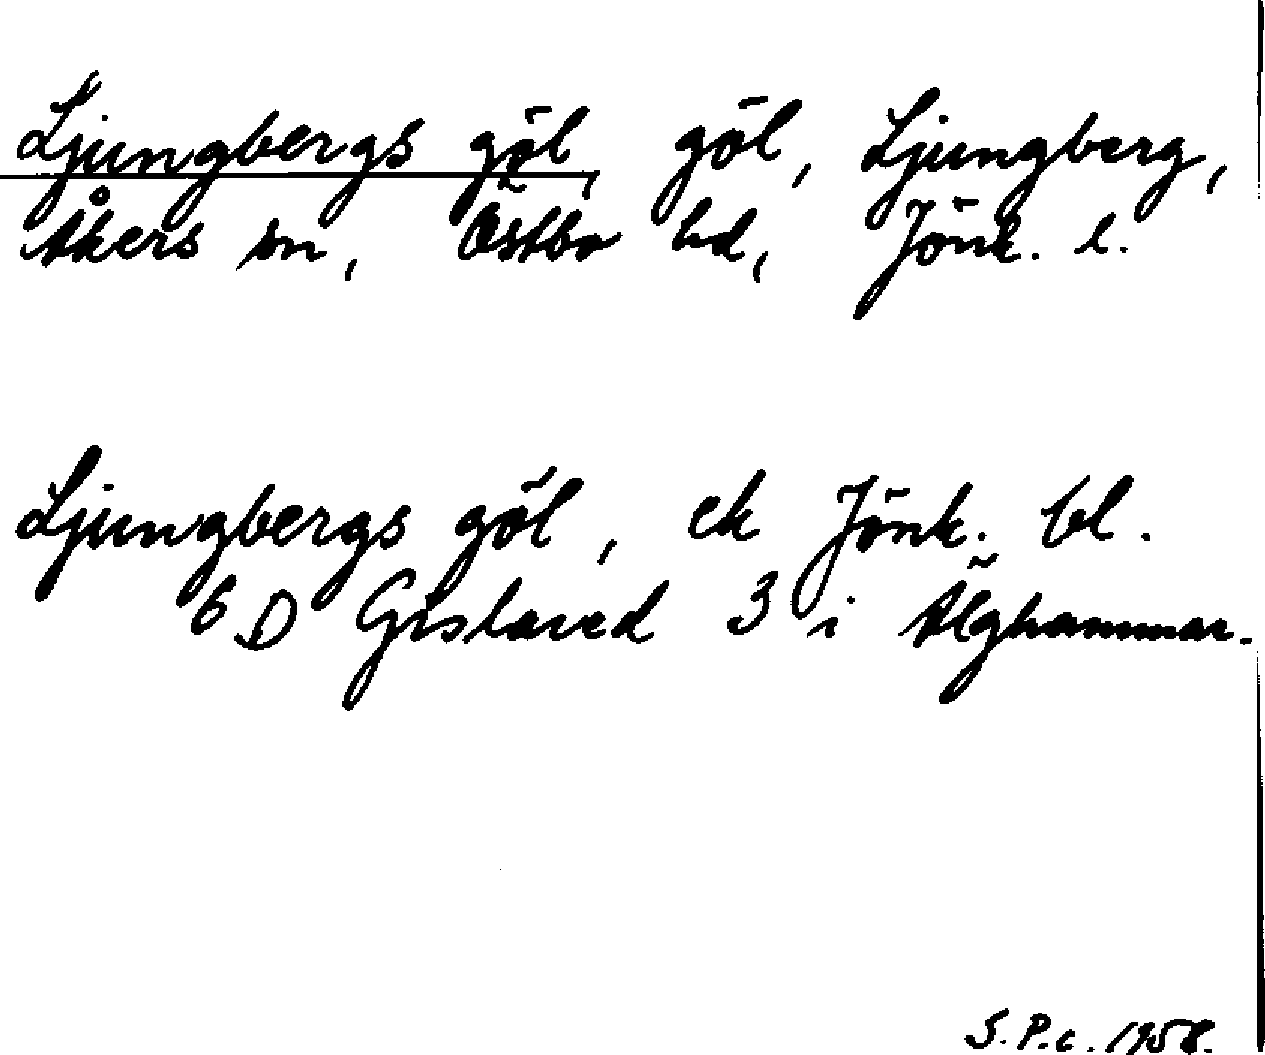 Ljungbergs göl, göl, Ljungberg,
Åkers sn, Östbo hd, Jönk. l.
Ljungbergs göl, ek Jönk. bl.
6 D Gislaved 3 i Älghammar.
S.P.c. 1958.